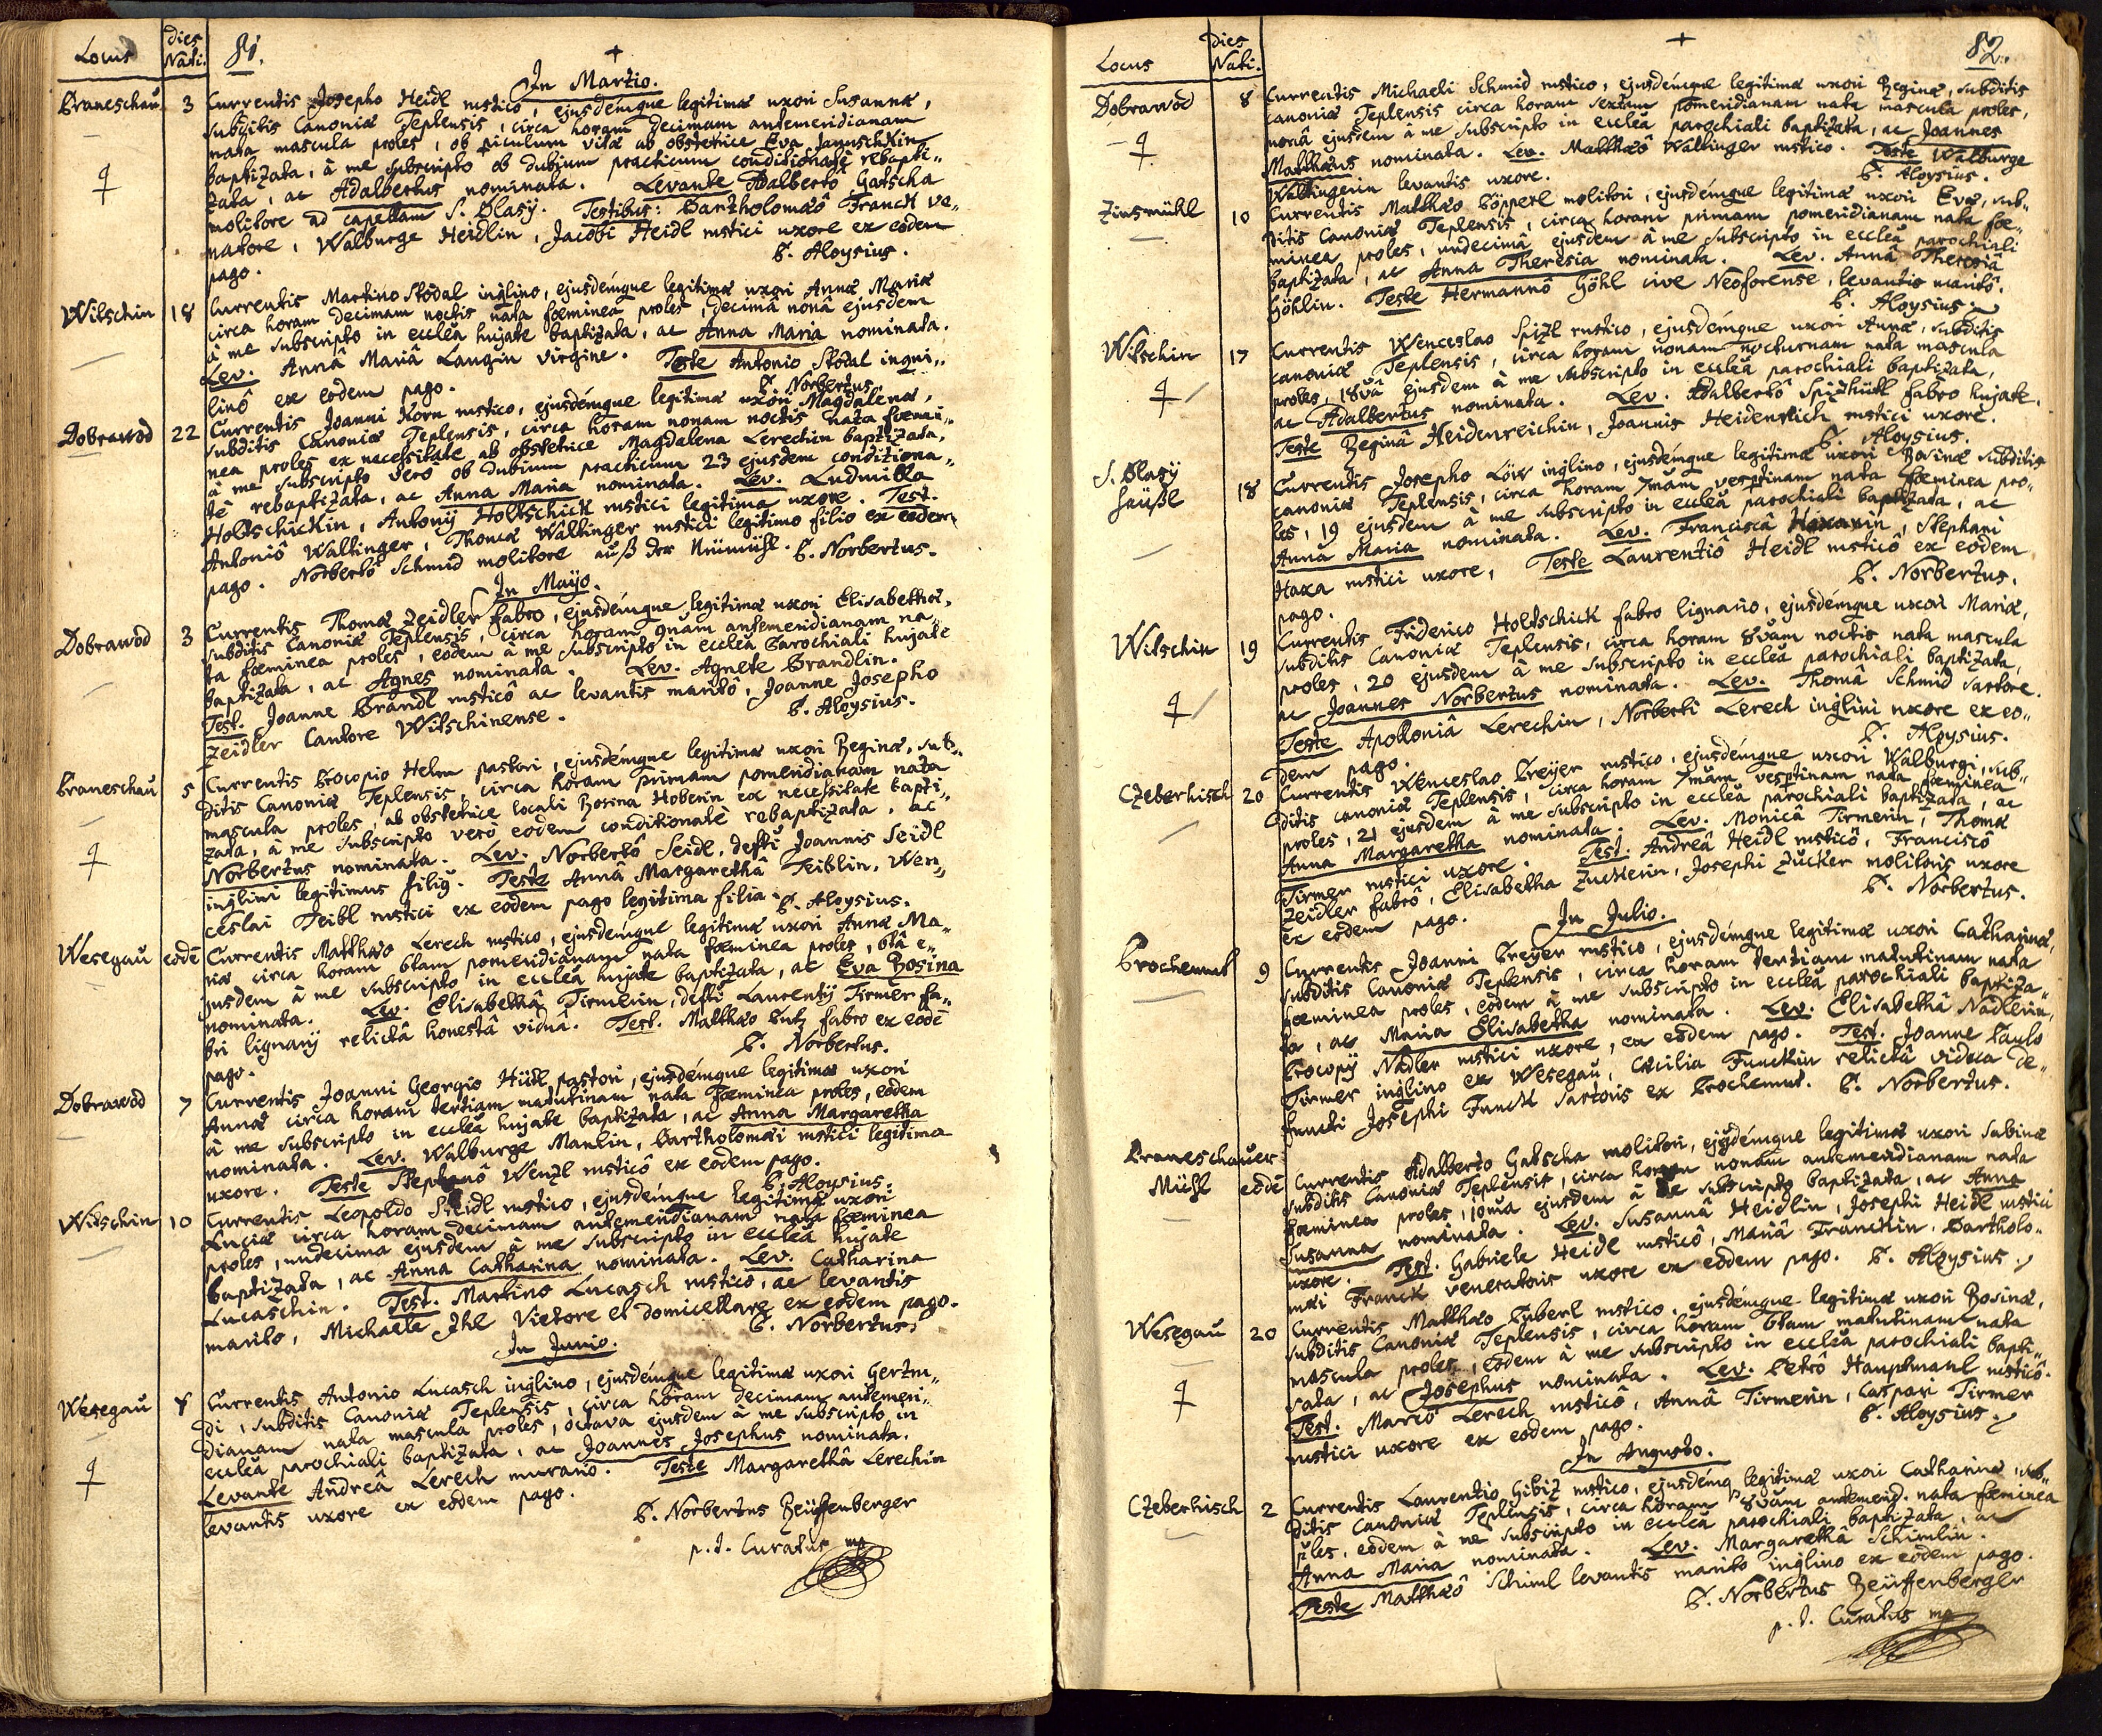 Locus
Dies Nati.
81.
In Martio.
Braneschau 3 Currentis Josepho Heidl rustico, ejusdémque legitimæ uxori Susannæ,
subditis Canoniæ Teplensis, circa horam decimam antemeridianam
nata mascula proles, ob piculum vitæ ab obstetrice Eva Januschkin
baptizata, à me subscripto ob dubium practicum conditionate rebapti„
zata, ac Adalbertus nominata. Levante Adalbertô Gatscha
molitore ad capellam S. Blasÿ. Testibus: Bartholomæô Franck ve„
natore, Walburge Heidlin, Jacobi Heidl rustici uxore ex eodem
pago. P. Aloysius.
Wilschin 18 Currentis Martino Stödal inqlino, ejusdémque legitimæ uxori Annæ Mariæ
circa horam decimam noctis nata fœminea proles, decimâ nonâ ejusdem
à me subscripto in eccleâ hujate baptizata, ac Anna Maria nominata.
Lev. Annâ Mariâ Langin virgine. Teste Antonio Stödal inqui„
linô ex eodem pago. P. Norbertus.
Dobrawod 22 Currentis Joanni Korn rustico, ejusdémque legitimæ uxori Magdalenæ,
subditis Canoniæ Teplensis, circa horam nonam noctis nata fœmi„
nea proles ex necessitate ab obstetrice Magdalena Lerechin baptizata,
à me subscripto verò ob dubium practicum 23 ejusdem conditiona„
tè rebaptizata, ac Anna Maria nominata. Lev. Ludmilla
Holtschickin, Antonÿ Holtschick rustici legitima uxore. Test.
Antoniô Waltinger, Thomæ Waltinger rustici legitimo filio ex eodem
pago. Norbertô Schmid molitore auß der Neümühl. P. Norbertus.
In Mayo.
Dobrawod 3 Currentis Thomæ Zeidler fabro, ejusdémque legitimæ uxori Elisabethæ,
subditis Canoniæ Teplensis, circa horam 9nam antemeridianam na„
ta fœminea proles, eodem à me subscripto in eccleâ Parochiali hujate
baptizata, ac Agnes nominata. Lev. Agnete Brandlin.
Test. Joanne Brandl rusticô ac levantis maritô, Joanne Josepho
Zeidler Cantore Witschinense. P. Aloysius.
Braneschau 5 Currentis Procopio Helm pastori, ejusdémque legitimæ uxori Reginæ, sub„
ditis Canoniæ Teplensis, circa horam primam pomeridianam nata
mascula proles, ab obstetrice locali Rosina Hoberin ex necessitate bapti„
zata, à me subscripto verò eodem conditionatè rebaptizata, ac
Norbertus nominata. Lev. Norbertô Seidl, defti Joannis Seidl
inqlini legitimus filiq. Teste Annâ Margarethâ Teiblin, Wen„
ceslai Teibl rustici ex eodem pago legitima filia. P. Aloysius.
Wesegau eodē Currentis Matthæo Lerech rustico, ejusdémque legitimæ uxori Annæ Ma„
riæ circa horam 6tam pomeridianam nata fœminea proles, 6tâ e„
jusdem à me subscripto in eccleâ hujate baptizata, ac Eva Rosina
nominata. Lev. Elisabethâ Tirmerin, defti Laurentÿ Tirmer fa„
bri lignarÿ relictâ honestâ viduâ. Test. Matthæo Lutz fabro ex eodē
pago. P. Norbertus.
Dobrawod 7 Currentis Joanni Georgio Hüttl pastori, ejusdémque legitimæ uxori
Annæ circa horam tertiam matutinam nata fœminea proles, eodem
à me subscripto in eccleâ hujate baptizata, ac Anna Margaretha
nominata. Lev. Walburge Manlin, Bartholomæi rustici legitima
uxore. Teste Stephanô Wentzl rusticô ex eodem pago.
P. Aloysius.
Witschin 10 Currentis Leopoldo Seidl rustico, ejusdémque legitimæ uxori
Luciæ circa horam decimam antemeridianam nata fœminea
proles, undecima ejusdem à me subscripto in eccleâ hujate
baptizata, ac Anna Catharina nominata. Lev. Catharina
Lucaschin. Test. Martino Lucasch rustico, ac levantis
marito, Michaele Ihl Vietore et domicellare ex eodem pago.
P. Norbertus.
In Junio.
Wesegau 7 Currentis Antonio Lucasch inqlino, ejusdémque legitimæ uxori Gertru„
di, subditis Canoniæ Teplensis, circa horam decimam antemeri„
dianam nata mascula proles, octava ejusdem à me subscripto in
eccleâ parochiali baptizata, ac Joannes Josephus nominata.
Levante Andreâ Lerech murario. Teste Margarethâ Lerechin
levantis uxore ex eodem pago.
P. Norbertus Reüffenberger
p. t. Curatus mp
Locus
Dies Nati.
82.
Dobrawod 8 Currentis Michaeli Schmid rustico, ejusdémque legitimæ uxori Reginæ, subditis
canoniæ Teplensis circa horam sextam pomeridianam nata mascula proles,
nonâ ejusdem à me subscripto in eccleâ parochiali baptizata, ac Joannes
Matthæus nominata. Lev. Matthæô Waltinger rustico. Teste Walburge
Waltingerin levantis uxore. P. Aloysius.
Zinsmühl 10 Currentis Matthæo Pöpperl molitori, ejusdémque legitimæ uxori Evæ, sub„
ditis Canoniæ Teplensis, circa horam primam pomeridianam nata fœ„
minea proles, undecimâ ejusdem à me subscripto in eccleâ parochiali
baptizata, ac Anna Theresia nominata. Lev. Annâ Theresiâ
Göhlin. Teste Hermannô Göhl cive Neoforense, levantis maritô.
P. Aloysius
Witschin 17 Currentis Wenceslao Spizl rustico, ejusdémque uxori Annæ, subditis
canoniæ Teplensis, circa horam nonam nocturnam nata mascula
proles, 18vâ ejusdem à me subscripto in eccleâ parochiali baptizata,
ac Adalbertus nominata. Lev. Adalbertô Spizhütl fabro hujate.
Teste Reginâ Heidenreichin, Joannis Heidenreich rustici uxore.
P. Aloysius.
S. Blasÿ
Heüßl 18 Currentis Josepho Löw inqlino, ejusdémque legitimæ uxori Rosinæ subditis
canoniæ Teplensis, circa horam 7mam vesptinam nata fœminea pro„
les, 19 ejusdem à me subscripto in eccleâ parochiali baptizata, ac
Anna Maria nominata. Lev. Franciscâ Haxanin, Stephani
Haxa rustici uxore, Teste Laurentiô Heidl rusticô ex eodem
pago. P. Norbertus.
Witschin 19 Currentis Friderico Holtschick fabro lignario, ejusdémque uxori Mariæ,
subditis Canoniæ Teplensis, circa horam 8vam noctis nata mascula
proles, 20 ejusdem à me subscripto in eccleâ parochiali baptizata,
ac Joannes Norbertus nominata. Lev. Thoma Schmid sartore.
Teste Apolloniâ Lerechin, Norberti Lerech inqlini uxore ex eo„
dem pago. P. Aloysius.
Czeberhisch 20 Currentis Wenceslao Preÿer rustico, ejusdémque uxori Walburgi, sub„
ditis canoniæ Teplensis, circa horam 7mam vesptinam nata fœminea
proles, 21 ejusdem à me subscripto in eccleâ parochiali baptizata, ac
Anna Margaretha nominata. Lev. Monicâ Tirmerin, Thomæ
Tirmer rustici uxore. Test. Andreâ Heidl rusticô, Franciscô
Zeidler fabrô, Elisabetha Zuckerin, Josephi Zucker molitoris uxore
ex eodem pago. P. Norbertus.
In Julio.
Prochemut 9 Currentis Joanni Preÿer rustico, ejusdémque legitimæ uxori Catharinæ,
subditis Canoniæ Teplensis, circa horam tertiam matutinam nata
fœminea proles, eodem à me subscripto in eccleâ parochiali baptiza„
ta, ac Maria Elisabetha nominata. Lev. Elisabethâ Nadlerin,
Procopÿ Nadler rustici uxore, ex eodem pago. Test. Joanne Paulo
Tirmer inqlino ex Wesegau, Cæcilia Funckin relictâ vidua de„
functi Josephi Funck sartoris ex Prochemut. P. Norbertus.
Braneschauer
Mühl eodē Currentis Adalberto Gatscha molitori, ejusdémque legitimæ uxori Sabinæ
subditis Canoniæ Teplensis, circa horam nonam antemeridianam nata
fœminea proles, 10ma ejusdem à me subscripto baptizata, ac Anna
Susanna nominata. Lev. Susannâ Heidlin, Josephi Heidl rustici
uxore. Test. Gabriele Heidl rusticô, Mariâ Franckin, Bartholo„
mæi Franck veneratoris uxore ex eodem pago. P. Aloysius.
Wesegau 20 Currentis Matthæo Luberl rustico, ejusdémque legitimæ uxori Rosinæ,
subditis Canoniæ Teplensis, circa horam 6tam matutinam nata
mascula proles, eodem à me subscripto in eccleâ parochiali bapti„
zata, ac Josephus nominata. Lev. Petrô Hauptmanl rusticô.
Test. Marcô Lerech rusticô, Annâ Tirmerin, Caspari Tirmer
rustici uxore ex eodem pago. P. Aloysius.
In Augusto.
Czeberhisch 2 Currentis Laurentio Gibiz rustico, ejusdémq legitimæ uxori Catharinæ, sub„
ditis Canoniæ Teplensis, circa horam 8vam antemerid. nata fœminea
ples, eodem à me subscripto in eccleâ parochiali baptizata, ac
Anna Maria nominata. Lev. Margarethâ Schimlin.
Teste Matthæô Schiml levantis marito inqlino ex eodem pago.
P. Norbertus Reüffenberger
p. t. Curatus mp